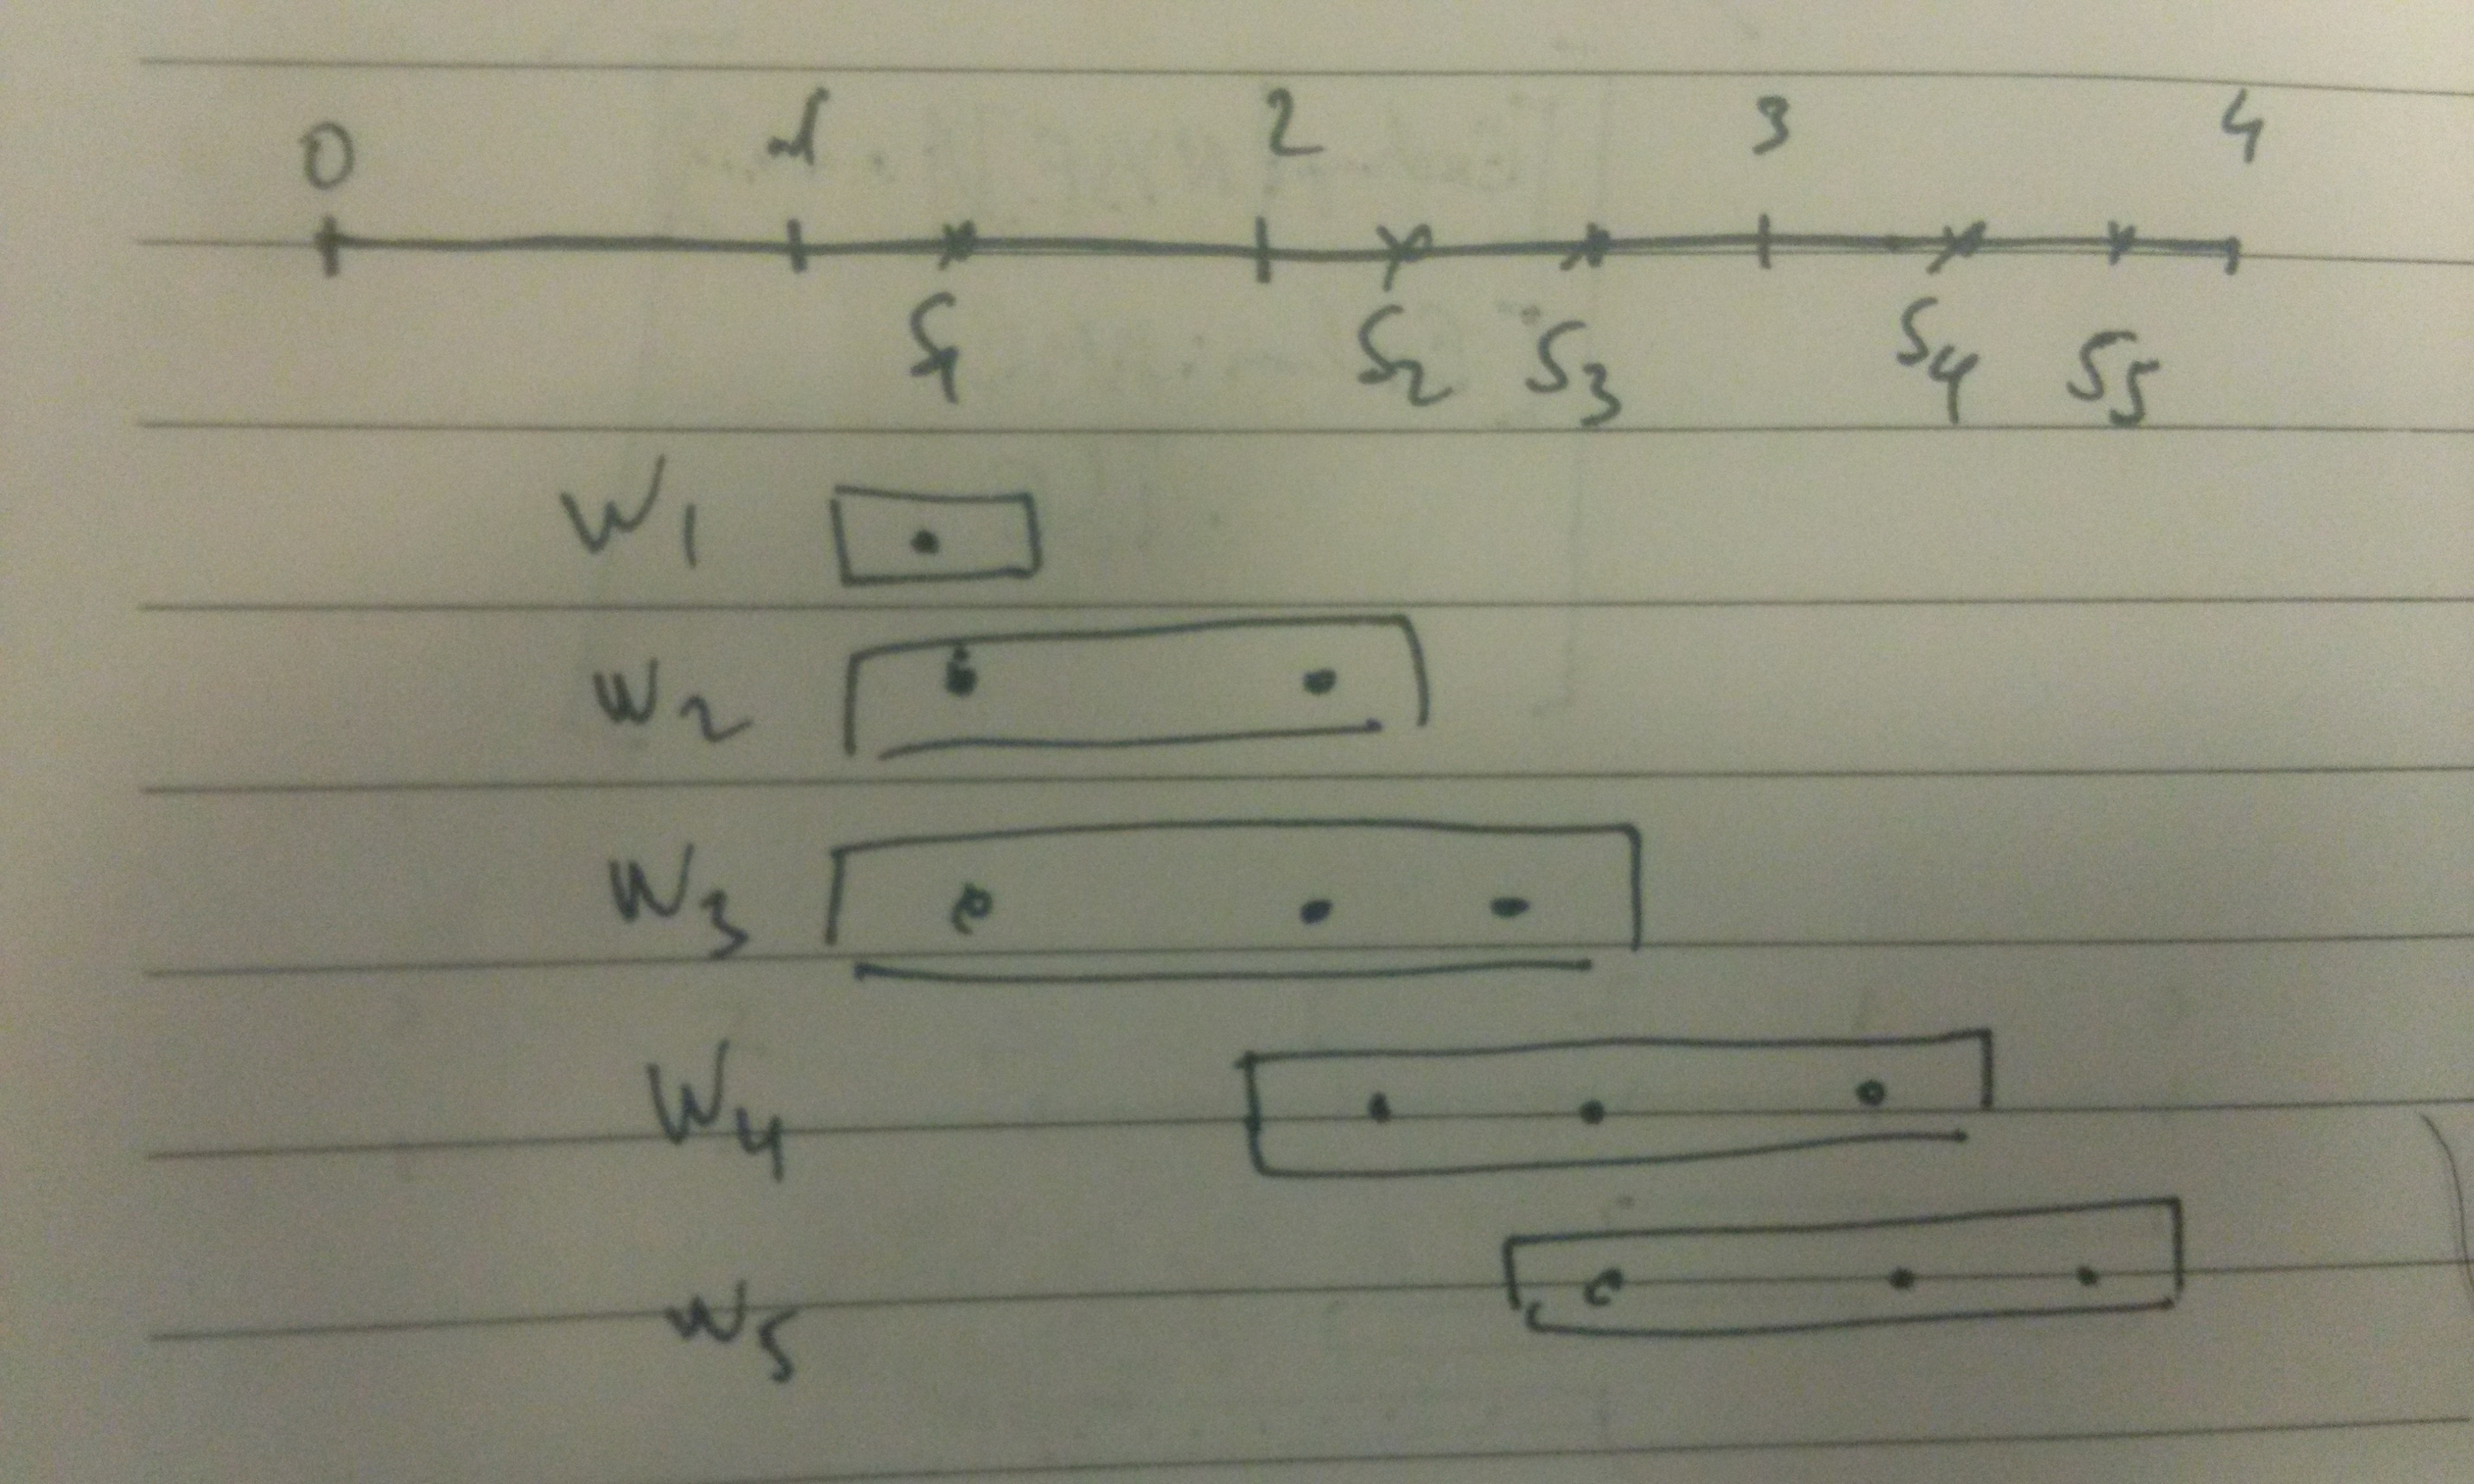 0 1 2 3 4
S1 S2 S3 S4 S5
W1
W2
W3
W4
W5